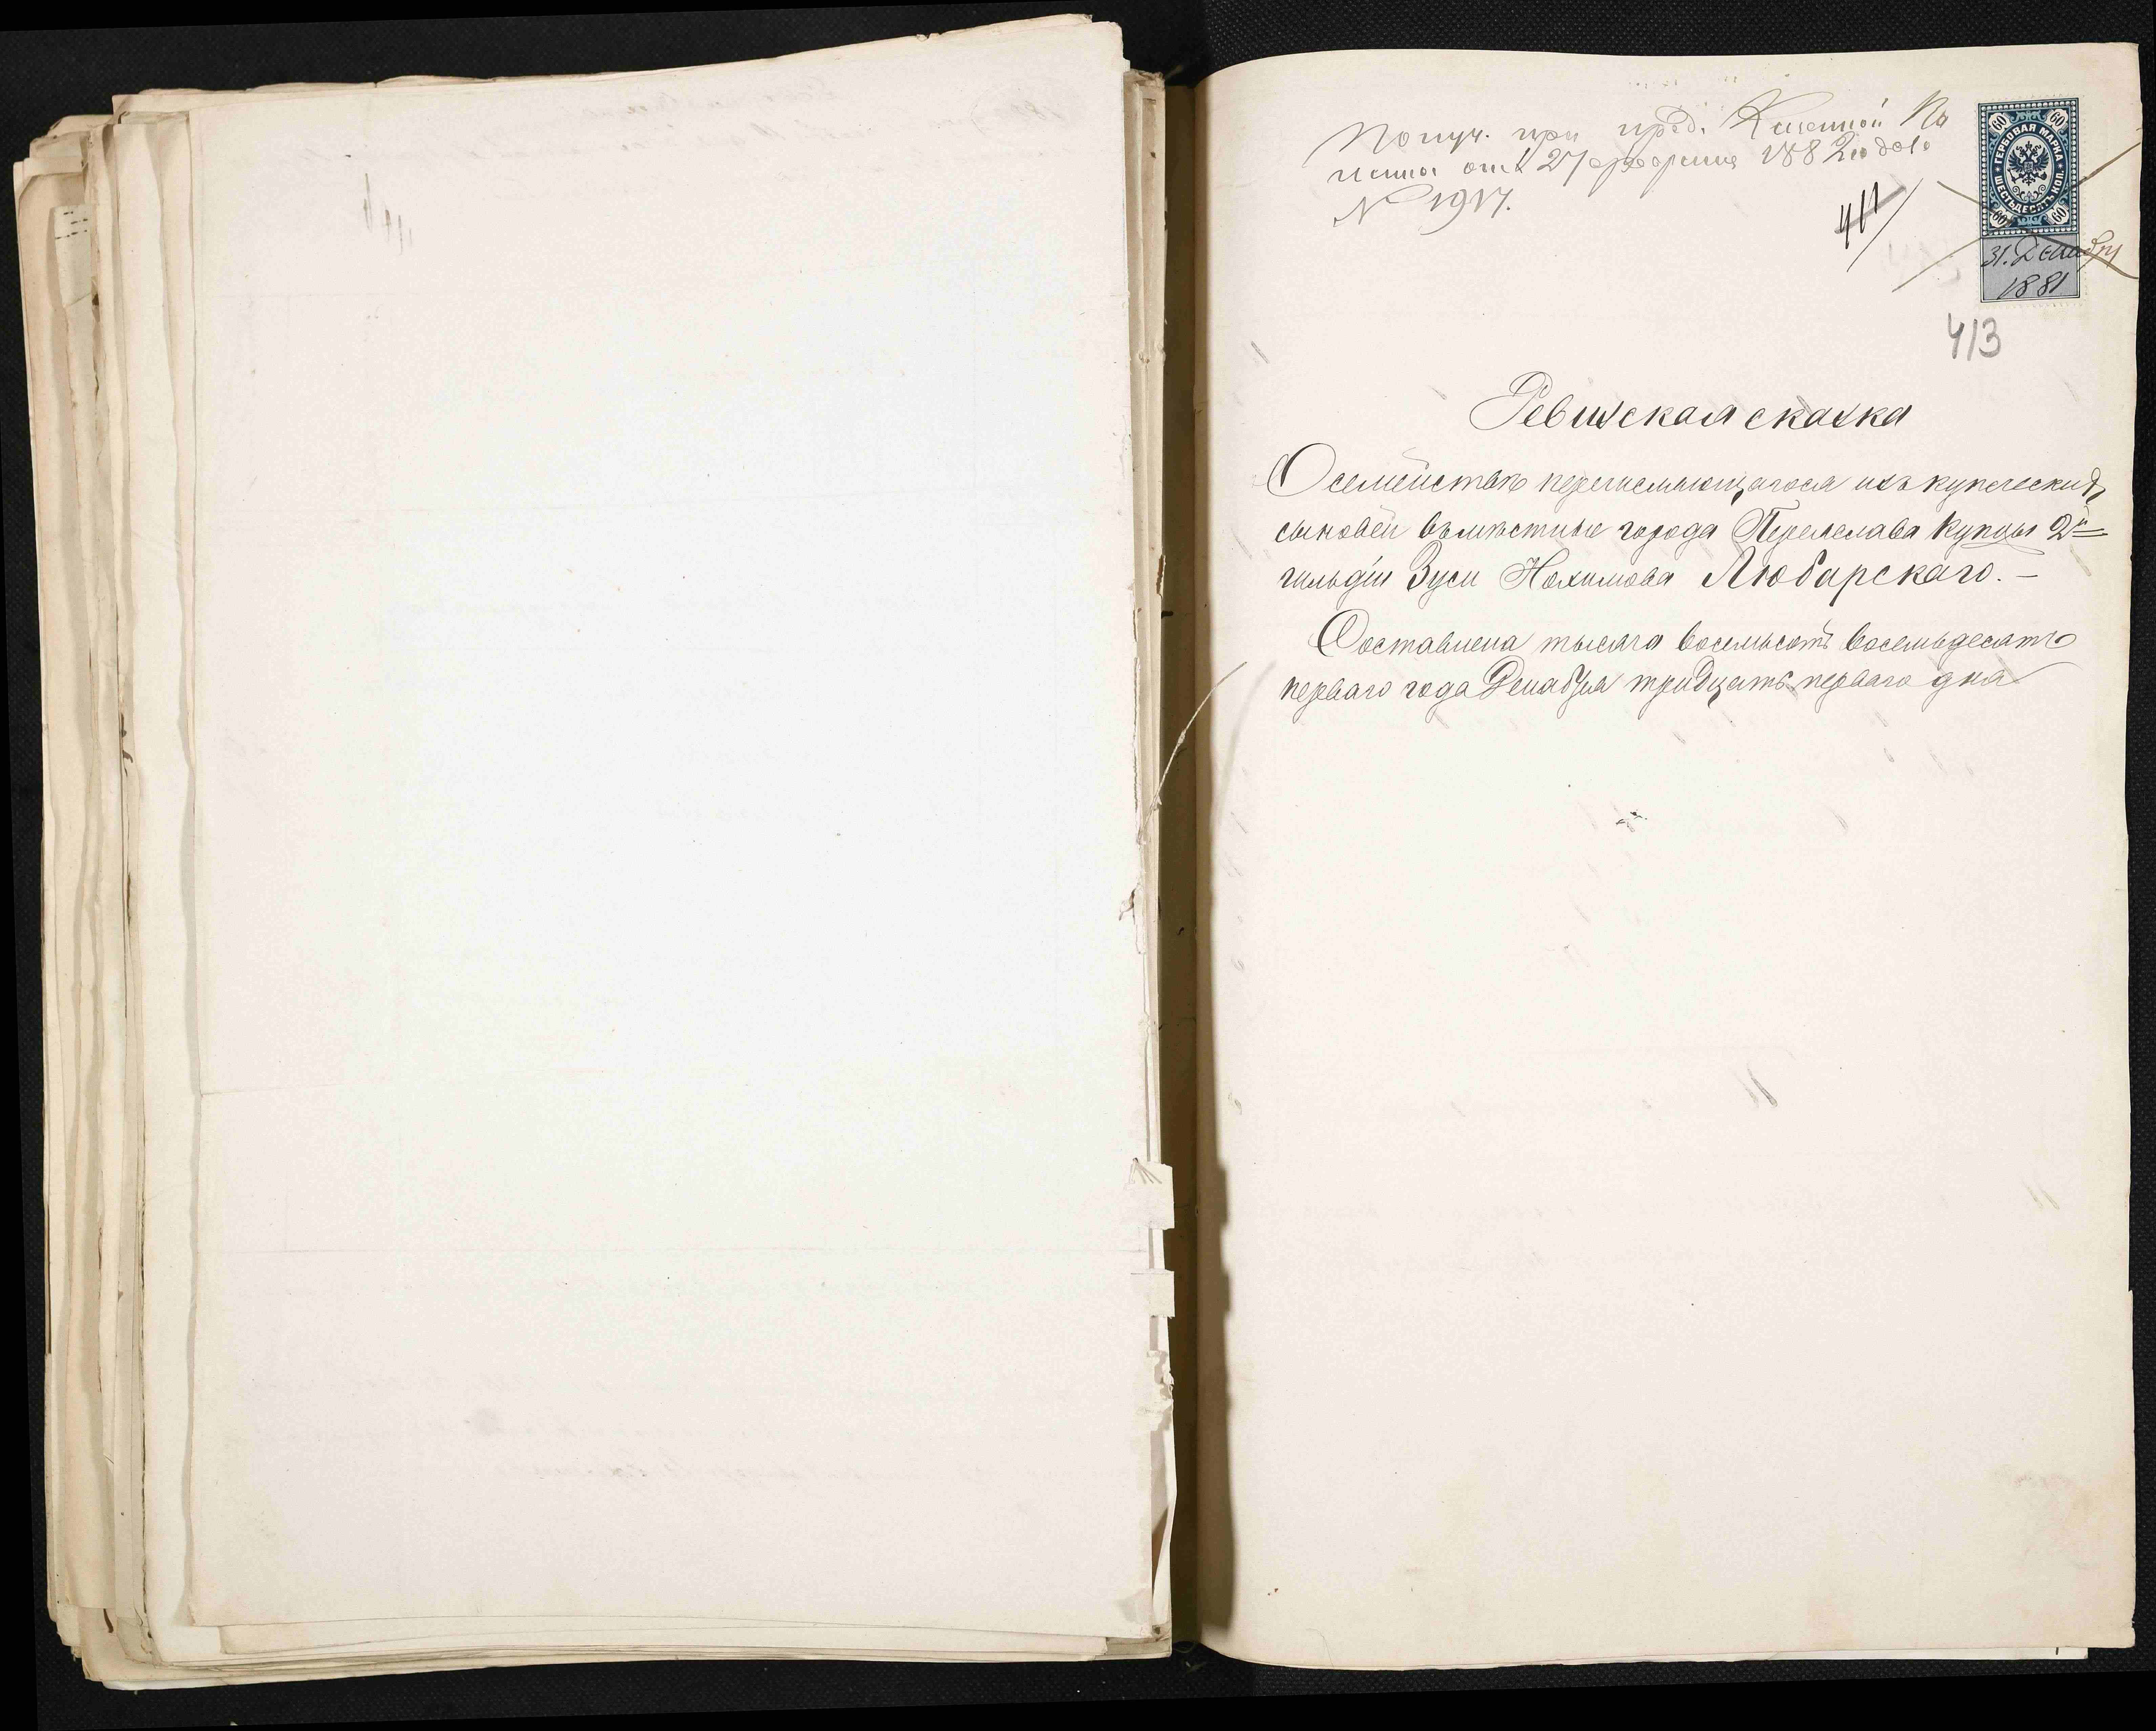 Получ. при пред. Казенной Па
латы отъ 27 февраля 1882 года
№ 1917.
411
ГЕРБОВАЯ МАРКА
ШЕСТЬДЕСЯТЪ КОП.
60 60 60 60
31. Декабря
1881
413
Ревизская сказка
О семействѣ перечисляющагося изъ купеческихъ
сыновей въ мѣстные города Переяслава купцы 2й
гильдіи Зуси Нохимова Любарскаго. —
Составлена тысяча восемьсотъ восемьдесятъ
перваго года Декабря тридцать перваго дня